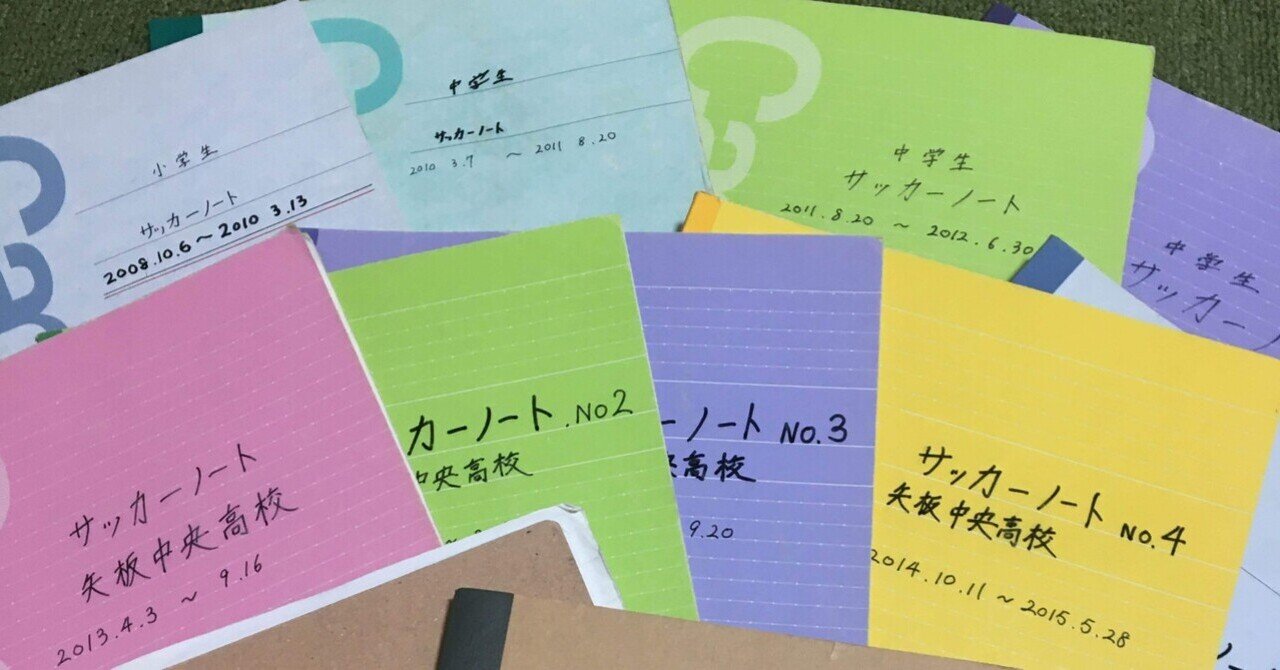 小学生
サッカーノート
2008.10.6 ～ 2010 3.13
中学生
サッカーノート
2010 3.7 ～ 2011 8.20
中学生
サッカーノート
2011.8.20 ～ 2012.6.30
中学生
サッカー
サッカーノート
矢板中央高校
2013.4.3 ～ 9.16
カーノート.NO2
中央高校
ーノート NO.3
央高校
9.20
サッカーノート NO.4
矢板中央高校
2014.10.11 ～ 2015.5.28